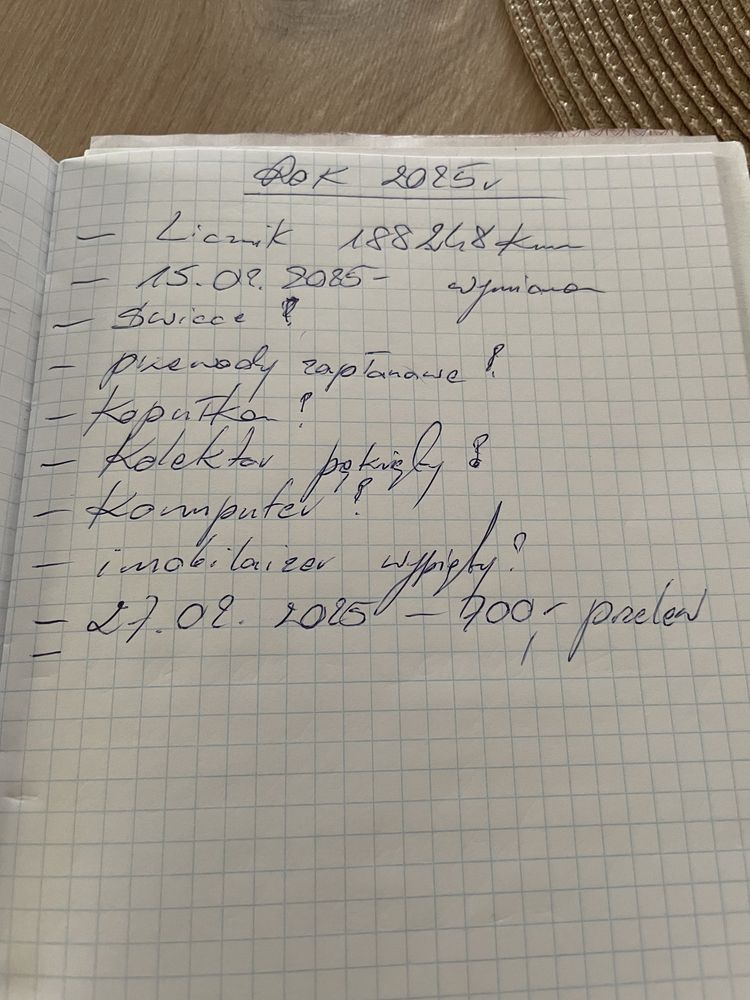 Rok 2025r
- Licznik 188248 km
- 15.02.2025 - wymiana
- Świece ?
- przewody zapłonowe ?
- Kopułka ?
- Kolektor pęknięty ?
- Komputer ?
- imobilaizer wypięty ?
- 27.02.2025 - 700,- przelew
-